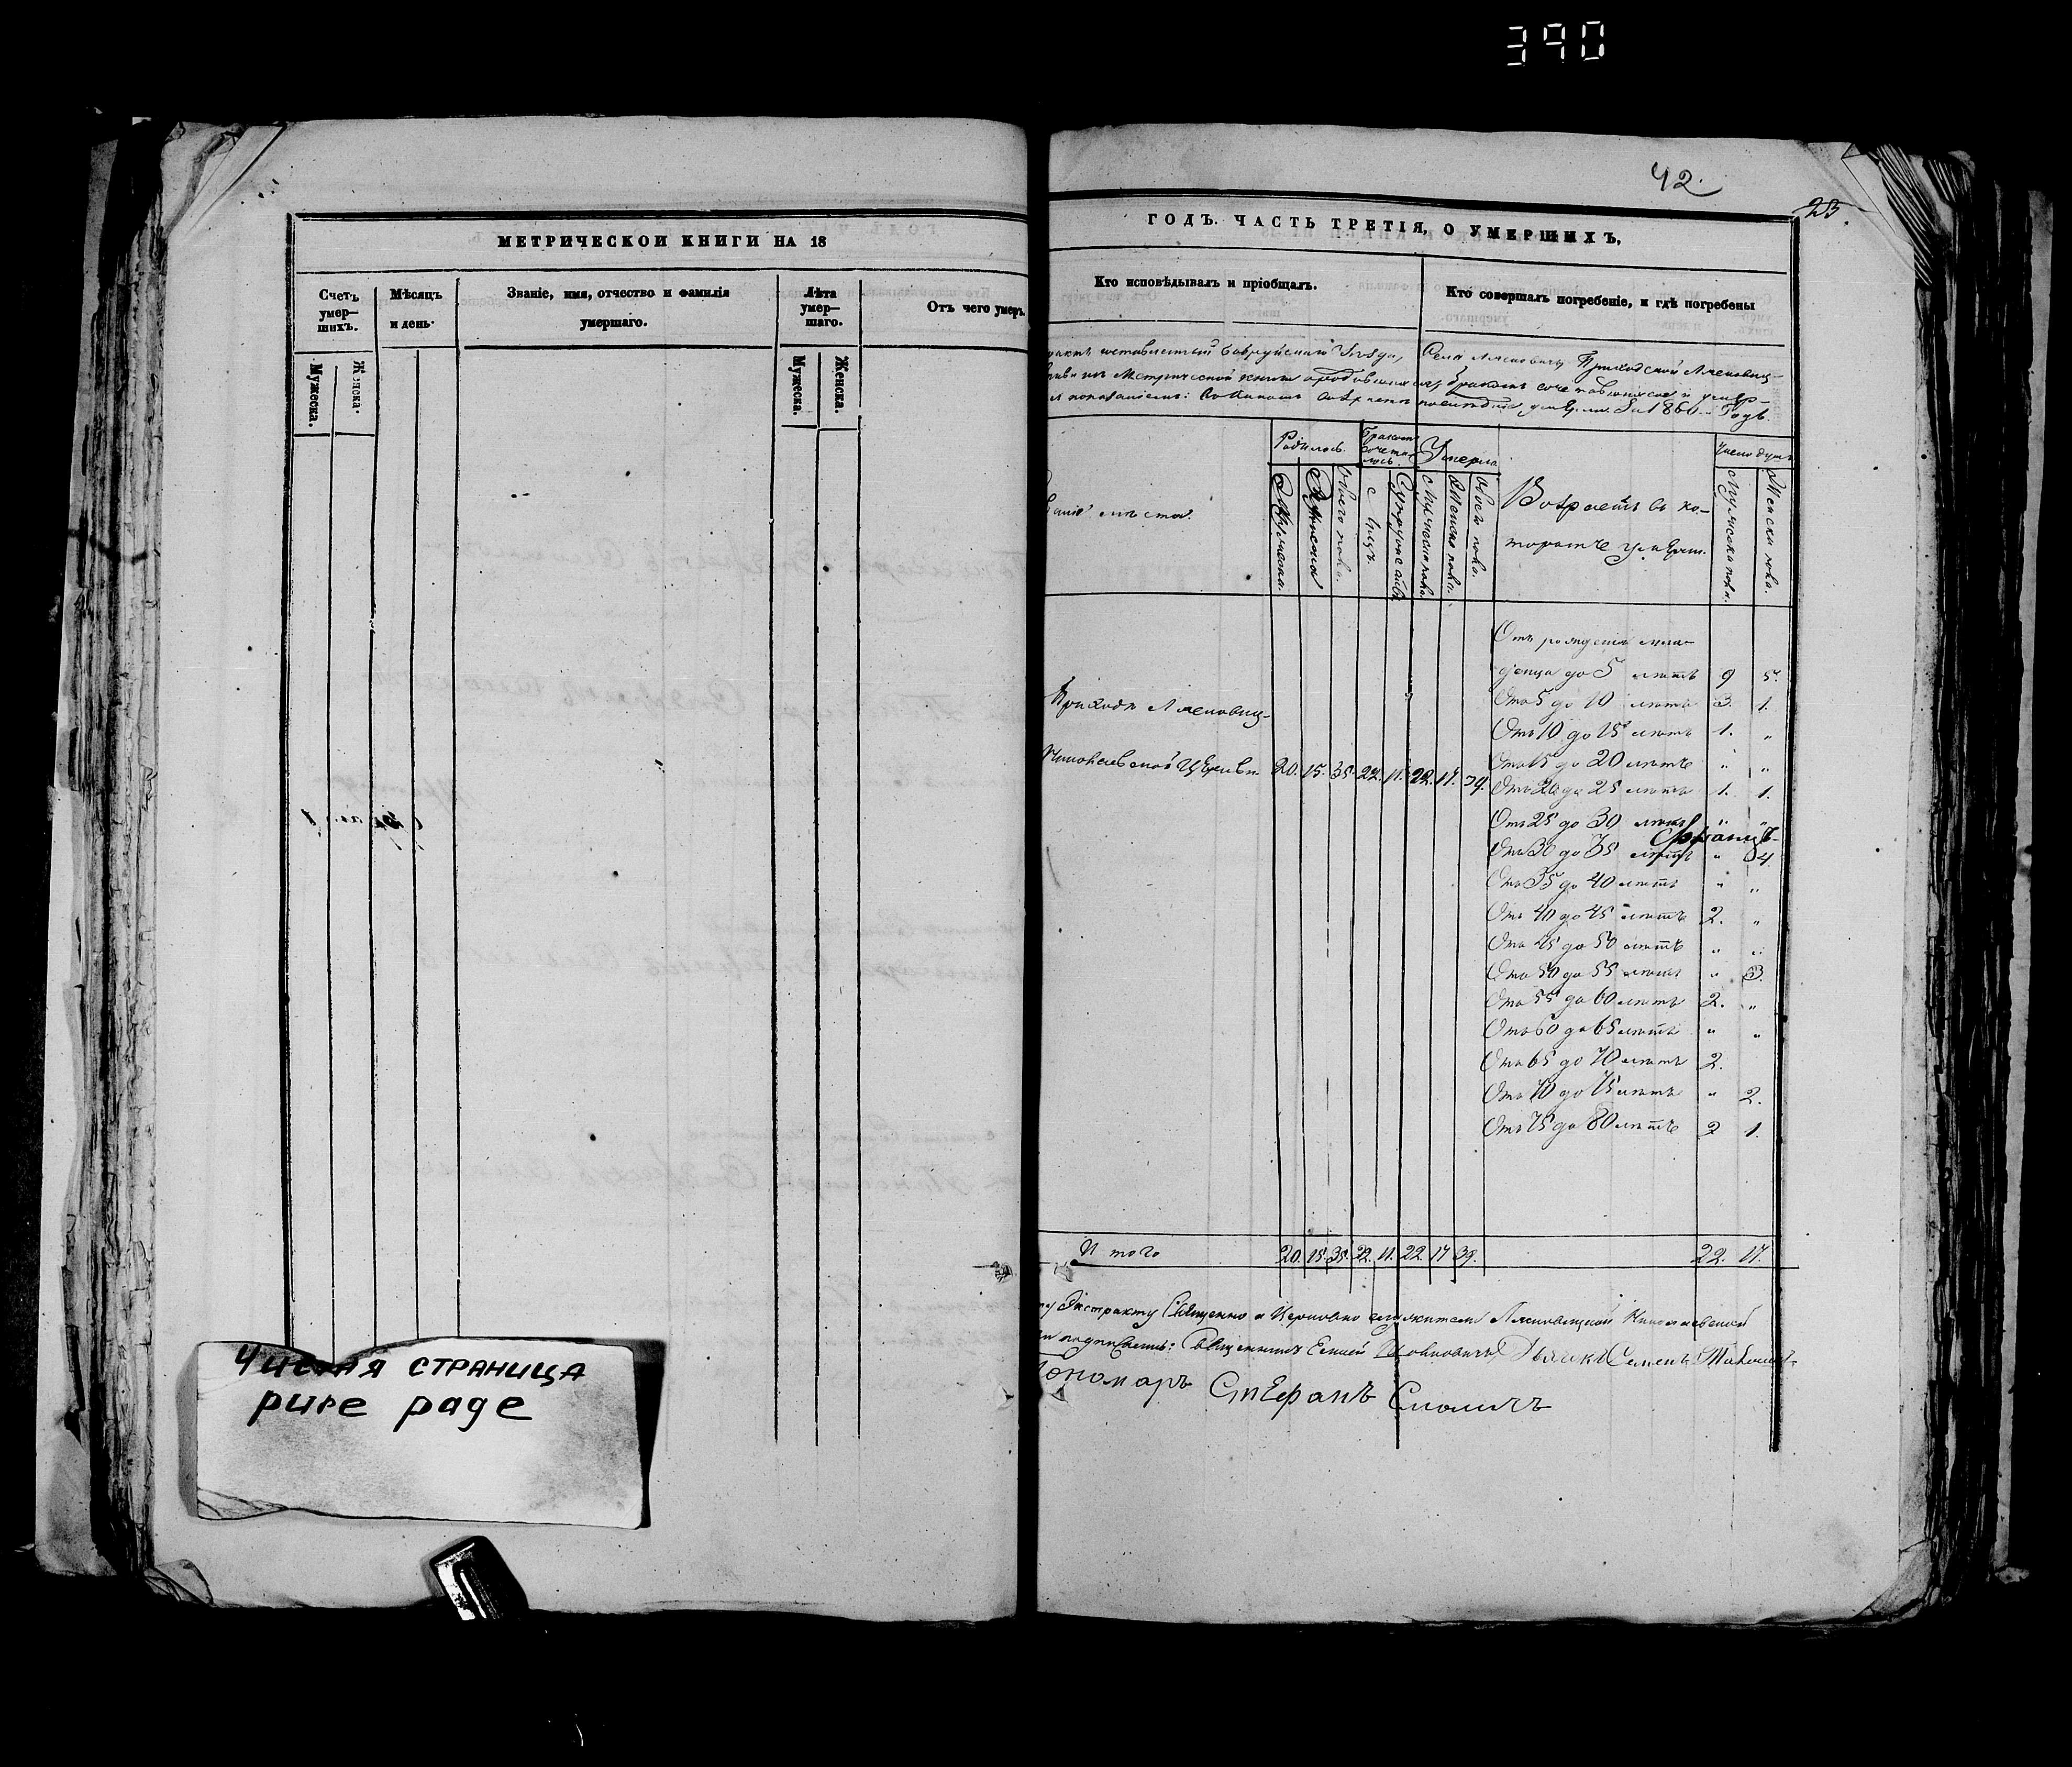 390
42.
23.
МЕТРИЧЕСКОИ КНИГИ НА 18
Счетъ умер—шихъ.
Мужеска.
Женска.
Мѣсяцъ и день.
Званіе, имя, отчество и фамилія умершаго.
Лѣта умер—шаго.
Мужеска.
Женска.
Отъ чего умеръ.
Чистая страница
pure page
ГОДЪ. ЧАСТЬ ТРЕТІЯ, О УМЕРШИХЪ,
Кто исповѣдывалъ и пріобщалъ.
Кто совершалъ погребеніе, и гдѣ погребены
составленный Бобруйскаго Уѣзда, Села Лясковичъ Приходской Лясковиц-
изъ Метрической книги о родившихся, бракомъ сочетавшихся и умер-
показаніемъ: возрастъ последніе умерли. За 1860 Годъ.
Родилось.
Бракомъ сочета-лось.
Умерло
Возрастъ въ ко-
торомъ умерли.
Число душъ
мѣста.
Мужеска.
Женска
Обоего пола.
Лицъ.
Мужеска пола.
Женска пола.
Обоего пола.
Мужеска пола.
Женска пола.
Отъ рожденія мла-
денца до 5 лѣтъ 9 5.
Отъ 5 до 10 лѣтъ 3. 1.
Отъ 10 до 15 лѣтъ 1. „
Отъ 15 до 20 лѣтъ „ „
Прихода Лясковиц-
Николаевской Церкви 20. 15. 35. 22. 11. 22. 17. 39.
Отъ 20 до 25 лѣтъ 1. 1.
Отъ 25 до 30 лѣтъ „ „
Отъ 30 до 35 лѣтъ „ 4.
Отъ 35 до 40 лѣтъ „ „
Отъ 40 до 45 лѣтъ 2. „
Отъ 45 до 50 лѣтъ „ „
Отъ 50 до 55 лѣтъ „ 3.
Отъ 55 до 60 лѣтъ 2. „
Отъ 60 до 65 лѣтъ „ „
Отъ 65 до 70 лѣтъ 2.
Отъ 70 до 75 лѣтъ „ 2.
Отъ 75 до 80 лѣтъ 2 1.
Итого 20. 15. 35. 22. 11. 22. 17 39. 22. 17.
Экстракту Священно и Церковно служители Лясковицкой Николаевской
подписались: Священникъ Дьячекъ Семенъ
Пономаръ Стефанъ Смоличъ